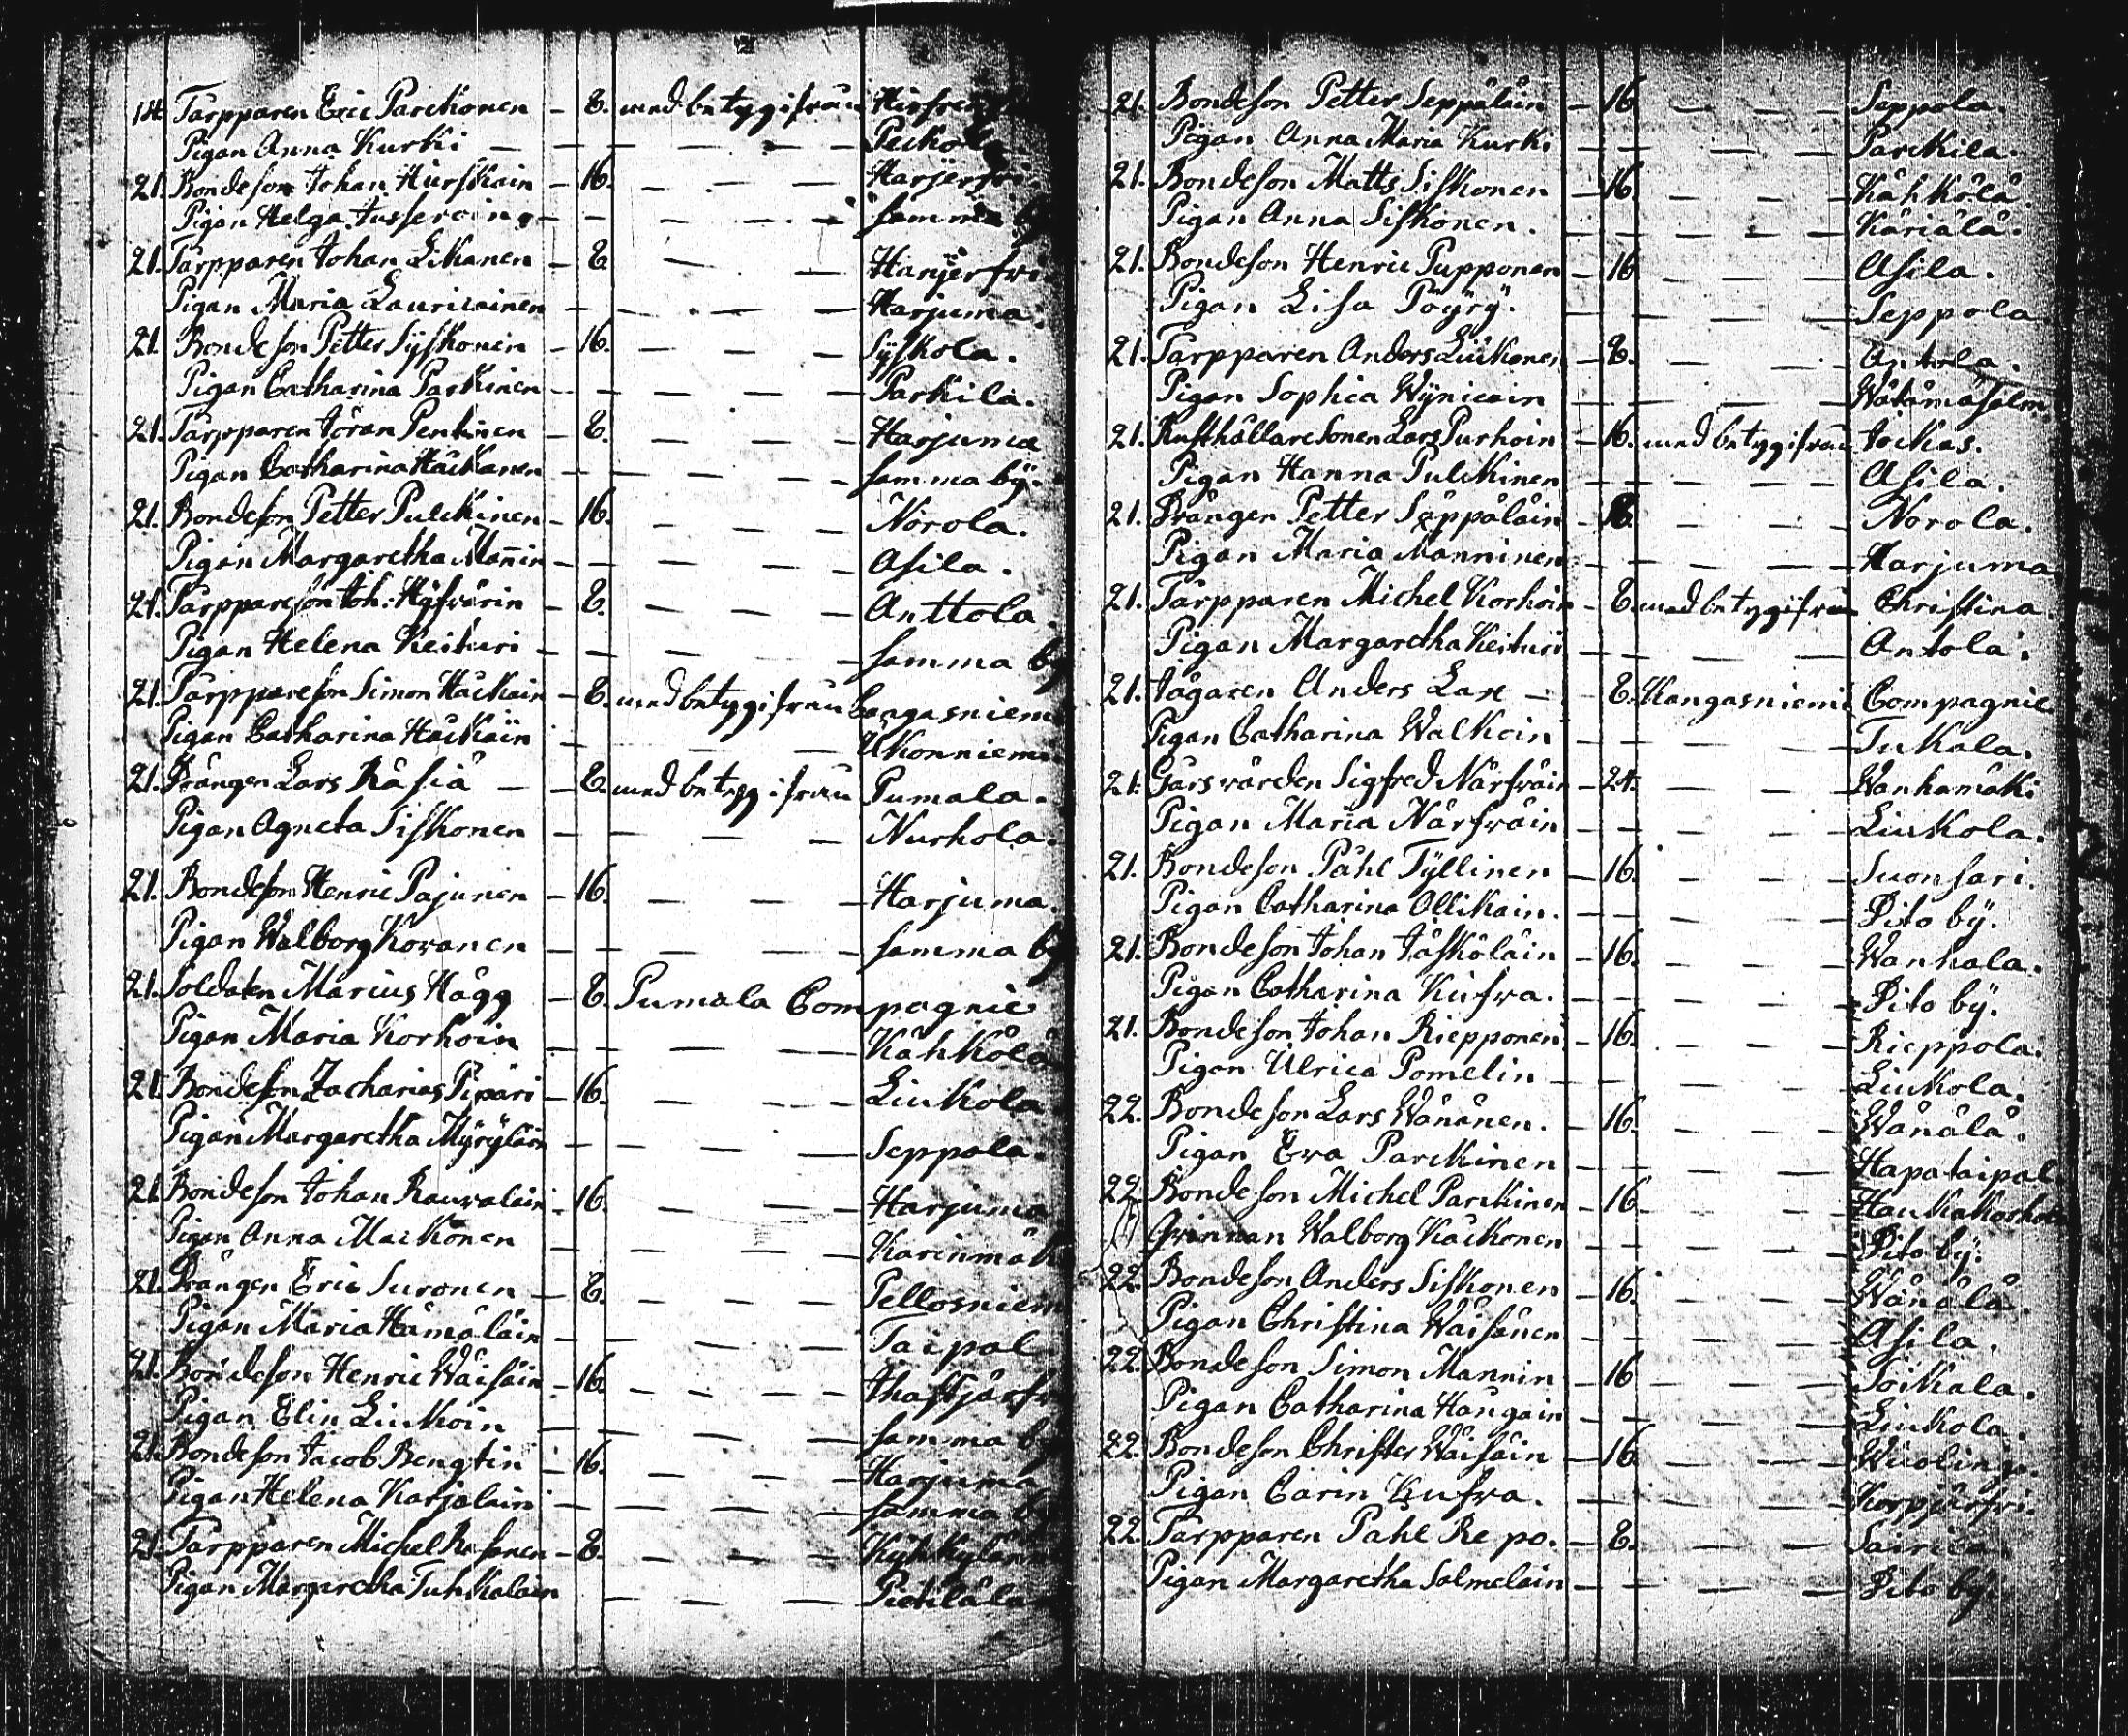 14. Tårpparen Eric Parckonen — 8. med betyg ifrån Hirfrens
Pigan Anna Kurki — — — — Peckola
21. Bondeson Johan Hurskain — 16. — — — Harjerfvi
Pigan Helga Jusseroing — — — — samma by
21. Tårpparen Johan Likanen — 8 — — Harjerfvi
Pigan Maria Lauricainen — — — — Harjuma.
21. Bondeson Petter Syskonen — 16. — — — Syskola.
Pigan Catharina Parkinen — — — — Parkila.
21. Tårpparen Jöran Pentinen — 8. — — — Harjuma
Pigan Catharina Häckanen — — — — samma bÿ.
21. Bondeson Petter Pulckinen — 16. — — — Norola.
Pigan Margaretha Mañin — — — — Asila.
21. Tårppareson Joh: Hyfvärin — 8. — — — Anttola.
Pigan Helena Keituri — — — — samma by
21. Tårppareson Simon Häckäin — 8. med betyg ifrån Cangasniemi
Pigan Catharina Häckäin — — — Ukonniemi
21. Drängen Lars Räsiä — — 8. med betyg ifrån Pumala.
Pigan Agneta Siskonen — — — Nurhola.
21. Bondeson Henric Pajunen — 16. — — — Harjuma.
Pigan Walborg Kovanen — — — — samma by
21. Soldaten Marius Hägg — 8. Pumala Compagnie
Pigan Maria Korhoin — — — — Kåhkölä
21. Bondeson Zacharias Pipari — 16. — — — Liukola
Pigan Margaretha Myryläin — — — — Seppola.
21. Bondeson Johan Rauvalain — 16. — — — Harjuma
Pigan Anna Mackonen — — — — Karinmäki
21. Drängen Eric Suronen — 8. — — — Pellosniemi
Pigan Maria Hämäläin — — — — Taipal
21. Bondeson Henric Wäisäin — 16. — — — Ihastjärfvi
Pigan Elin Liukoin — — — — samma by
21. Bondeson Jacob Bengtin — 16. — — — Harjuma
Pigan Helena Karjalain — — — — samma by
21. Tårpparen Michel Rasonen — 8. — — — Kyhkylänn
Pigan Margaretha Tuhkalain — — — Pietiläla
21. Bondeson Petter Seppäläin — 16 — — — Seppola.
Pigan Anna Maria Kurki — — — — Parckila.
21. Bondeson Matts Siskonen — 16. — — — Kåhkölä.
Pigan Anna Siskonen. — — — — Käriälä.
21. Bondeson Henric Pupponen — 16 — — — Asila.
Pigan Lisa Pöyry. — — — — Seppola
21. Tårpparen Anders Liukonen — 8. — — — Antola.
Pigan Sophia Wynicain — — — — Wåtämäsalm.
21. Rusthållaresonen Lars Purhoin — 16. med betyg ifrån Jockas.
Pigan Hanna Pulckinen — — — — Asila.
21. Drängen Petter Säppäläin — 8. — — — Norola.
Pigan Maria Manninen — — — — Harjuma
21. Tårpparen Michel Korhoin — 8. med betyg ifrån Christina
Pigan Margaretha Keituri — — — — Antola.
21. Jägaren Anders Lax — 8. Kangasniemi Compagnie
Pigan Catharina Walkoin — — — — Tukala.
21. Gårsvärden Sigfred Närfväin — 24. — — — Wanhamäki
Pigan Maria Närfväin — — — — Liukola.
21. Bondeson Påhl Tyllinen — 16. — — — Suonsari.
Pigan Catharina Ollikain. — — — — Dito bÿ.
21. Bondeson Johan Jäskäläin — 16. — — — Wanhala.
Pigan Catharina Kufva. — — — — Dito bÿ.
21. Bondeson Johan Riepponen — 16. — — — Rieppola.
Pigan Ulrica Pomelin — — — — Liukola.
22. Bondeson Lars Wänänen. — 16. — — — Wänälä.
Pigan Eva Parckinen — — — — Hapataipal
22. Bondeson Michel Parckinen — 16. — — — Haukakorhola
Qvinnan Walborg Käckönen — — — — Dito bÿ.
22. Bondeson Anders Siskonen — 16. — — — Wänälä.
Pigan Christina Wäisänen — — — — Asila.
22. Bondeson Simon Mannin — 16 — — — Soikala.
Pigan Catharina Haugain — — — — Liukola.
22. Bondeson Christer Wäisäin — 16. — — — Wuolingo.
Pigan Carin Kufva. — — — — Korpjärfvi.
22. Tårpparen Påhl Repo. — 8. — — — Sairila
Pigan Margaretha Salmelain — — — — Dito bÿ.